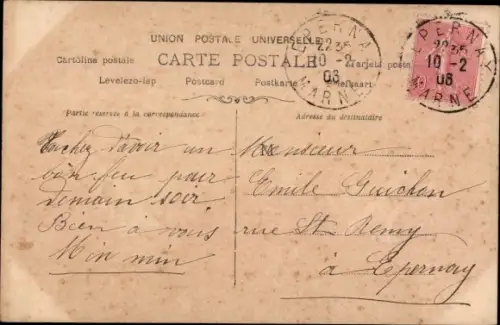 UNION POSTALE UNIVERSELLE
CARTE POSTALE
Cartolina postale
Tarjeta postal
Levelezo-lap
Postcard
Postkarte
Briefkaart
EPERNAY
22 35
10 - 2
06
MARNE
EPERNAY
22 35
10 - 2
06
MARNE
Partie réservée à la correspondance
Adresse du destinataire
Tachez d'avoir un
bon feu pour
demain soir
Bien à vous
Min min
Monsieur
Emile Guichon
rue St Remy
à Epernay